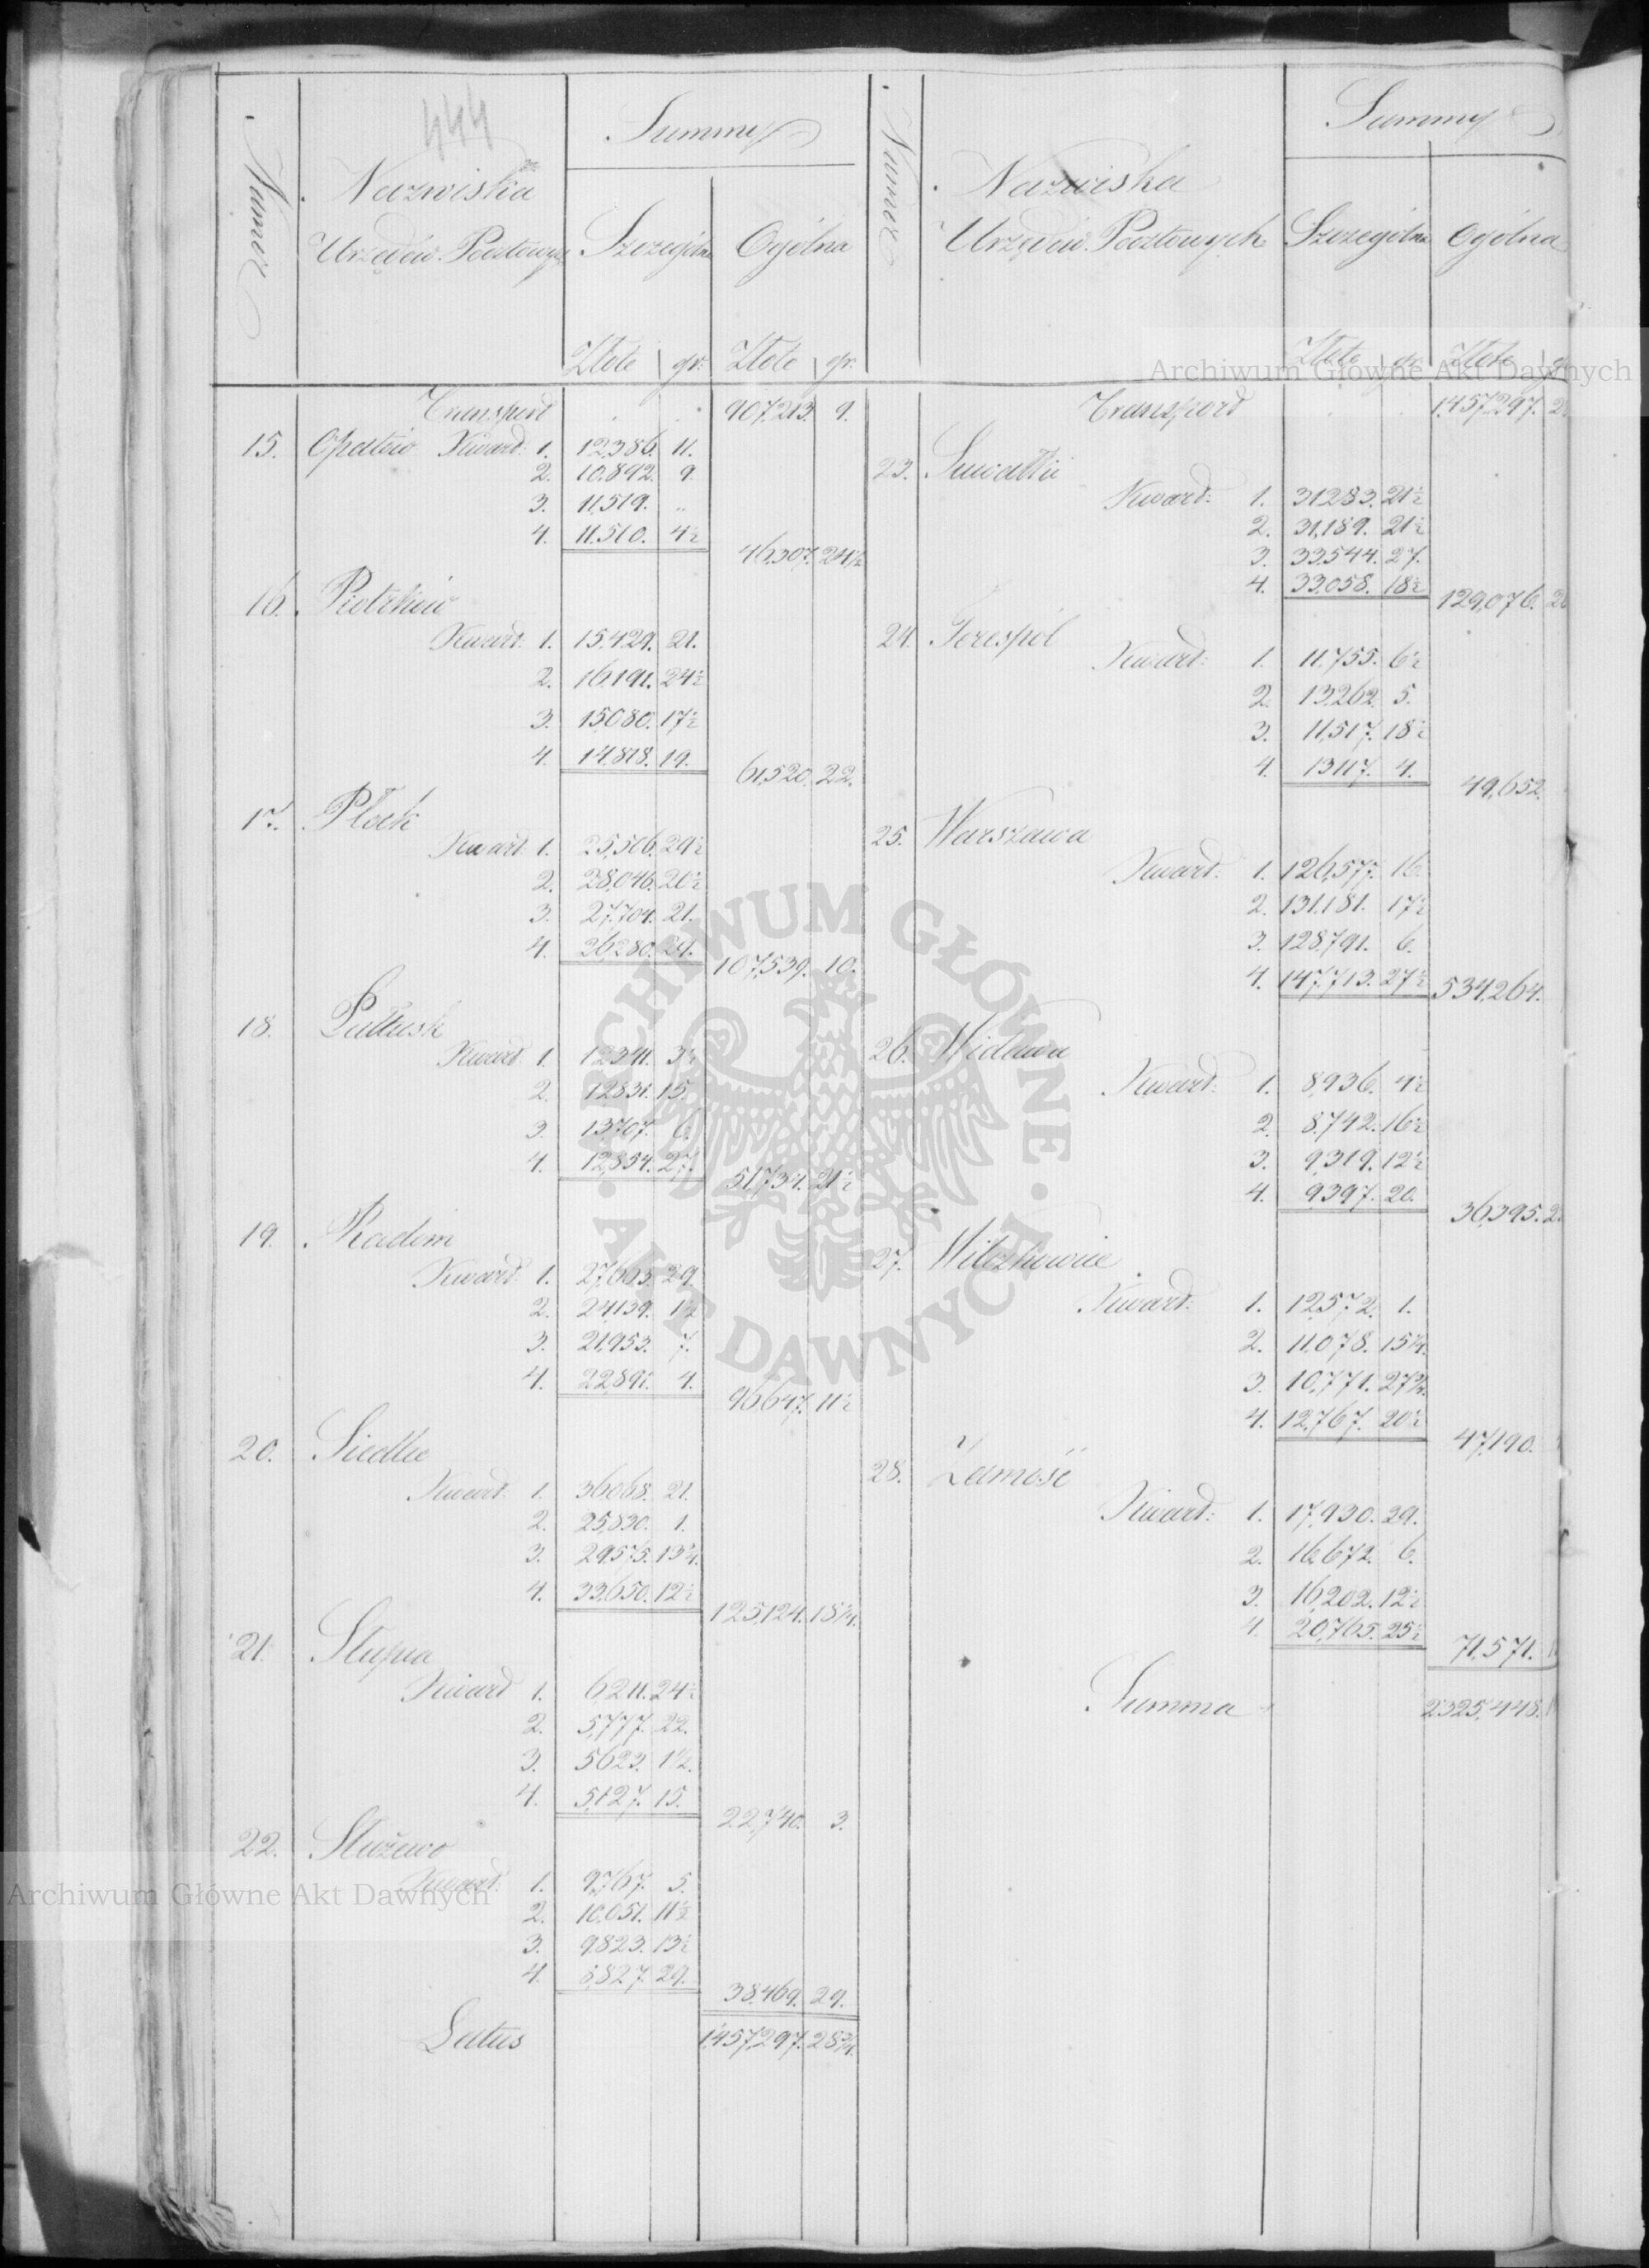 444
Numer
Nazwiska
Urzędów Pocztowych
Summy
Szczególna
Ogólna
Złote gr: Złote gr.
Transport 907,213. 9.
15. Opatów Kward: 1. 12,386. 11.
2. 10,892. 9.
3. 11,519. "
4. 11,510. 4½
46,307. 24½
16. Piotrków
Kward: 1. 15,429. 21.
2. 16,191. 24½
3. 15,080. 17½
4. 14,818. 19.
61,520. 22.
17. Płock
Kward 1. 25,506. 29½
2. 28,046. 20½
3. 27,704. 21.
4. 26,280. 29.
107,539. 10.
18. Pułtusk
Kward 1. 12,341. 3½
2. 12,831. 15.
3. 13,707. 6.
4. 12,854. 27.
51,734. 21½
19. Radom
Kward: 1. 27,663. 29.
2. 24,139. 1½
3. 21,953. 7.
4. 22,891. 4.
96,647. 11½
20. Siedlce
Kward: 1. 36,068. 21.
2. 25,830. 1.
3. 29,575. 13¾.
4. 33,650. 12½
125,124. 18¼.
21. Słupia
Kward 1. 6,211. 24½
2. 5,777. 22.
3. 5,623. 1½.
4. 5,127. 15.
22,740. 3.
22. Służewo
Kward: 1. 9,767. 5.
2. 10,051. 11½
3. 9,823. 13½
4. 8,827. 29.
38,469. 29.
Latus 1,457,297. 28¾.
Numer
Nazwiska
Urzędów Pocztowych
Summy
Szczególna
Ogólna
Złote gr Złote
Transport 1,457,297.
23. Suwałki
Kward: 1. 31,283. 21½
2. 31,189. 21½
3. 33,544. 27.
4. 33,058. 18½
129,076.
24. Terespol
Kward: 1. 11,755. 6½
2. 13,262. 5.
3. 11,517. 18½
4. 13,117. 4.
49,652.
25. Warszawa
Kward: 1. 126,577. 16.
2. 131,181. 17½
3. 128,791. 6.
4. 147,713. 27½
534,264.
26. Widawa
Kward: 1. 8,936. 4½
2. 8,742. 16½
3. 9,319. 12½
4. 9,397. 20.
36,395.
27. Witozkowice
Kward: 1. 12,572. 1.
2. 11,078. 15¼.
3. 10,771. 27¾.
4. 12,767. 20½
47,190.
28. Zamość
Kward: 1. 17,930. 29.
2. 16,672. 6.
3. 16,202. 12½
4. 20,765. 25½
71,571.
Summa 2,325,448.
Archiwum Główne Akt Dawnych
ARCHIWUM GŁÓWNE · AKT DAWNYCH ·
Archiwum Główne Akt Dawnych